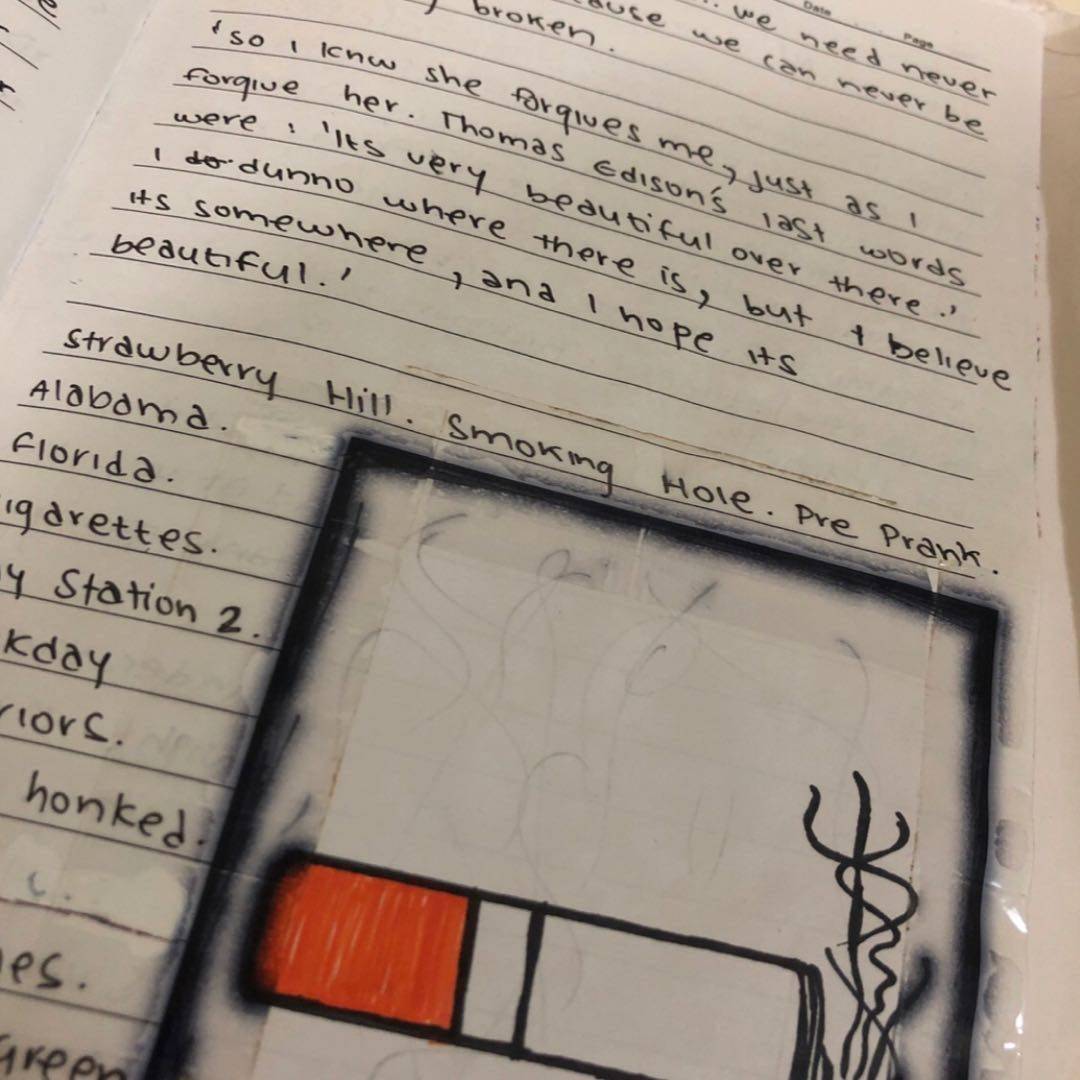 Date
Page
we need never
we can never be
broken.
'so I knw she forgives me, just as I
forgive her. Thomas Edison's last words
were : 'Its very beautiful over there.'
I do dunno where there is, but I believe
its somewhere, and I hope its
beautiful.'
Strawberry Hill. Smoking Hole. Pre Prank.
Alabama.
Florida.
igarettes.
y Station 2.
kday
riors.
honked.
es.
Green